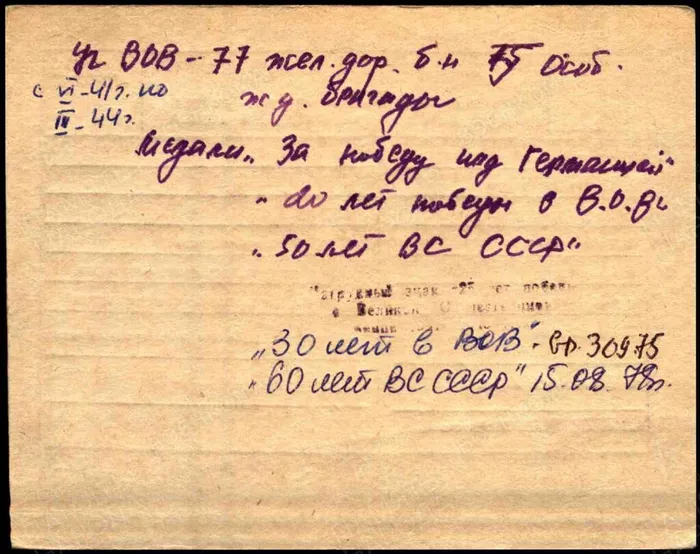 Уч ВОВ - 77 жел. дор. б-н 75 особ.
с VI-41г. по ж д. бригады
III-44г.
Медали „За победу над Германией"
„20 лет победы в В.О.В"
„50 лет ВС СССР"
Нагрудный знак -25 лет победы
в Великой Отечественной
„30 лет в ВОВ" - вр. 30 9 75
„60 лет ВС СССР" 15.08.78г.